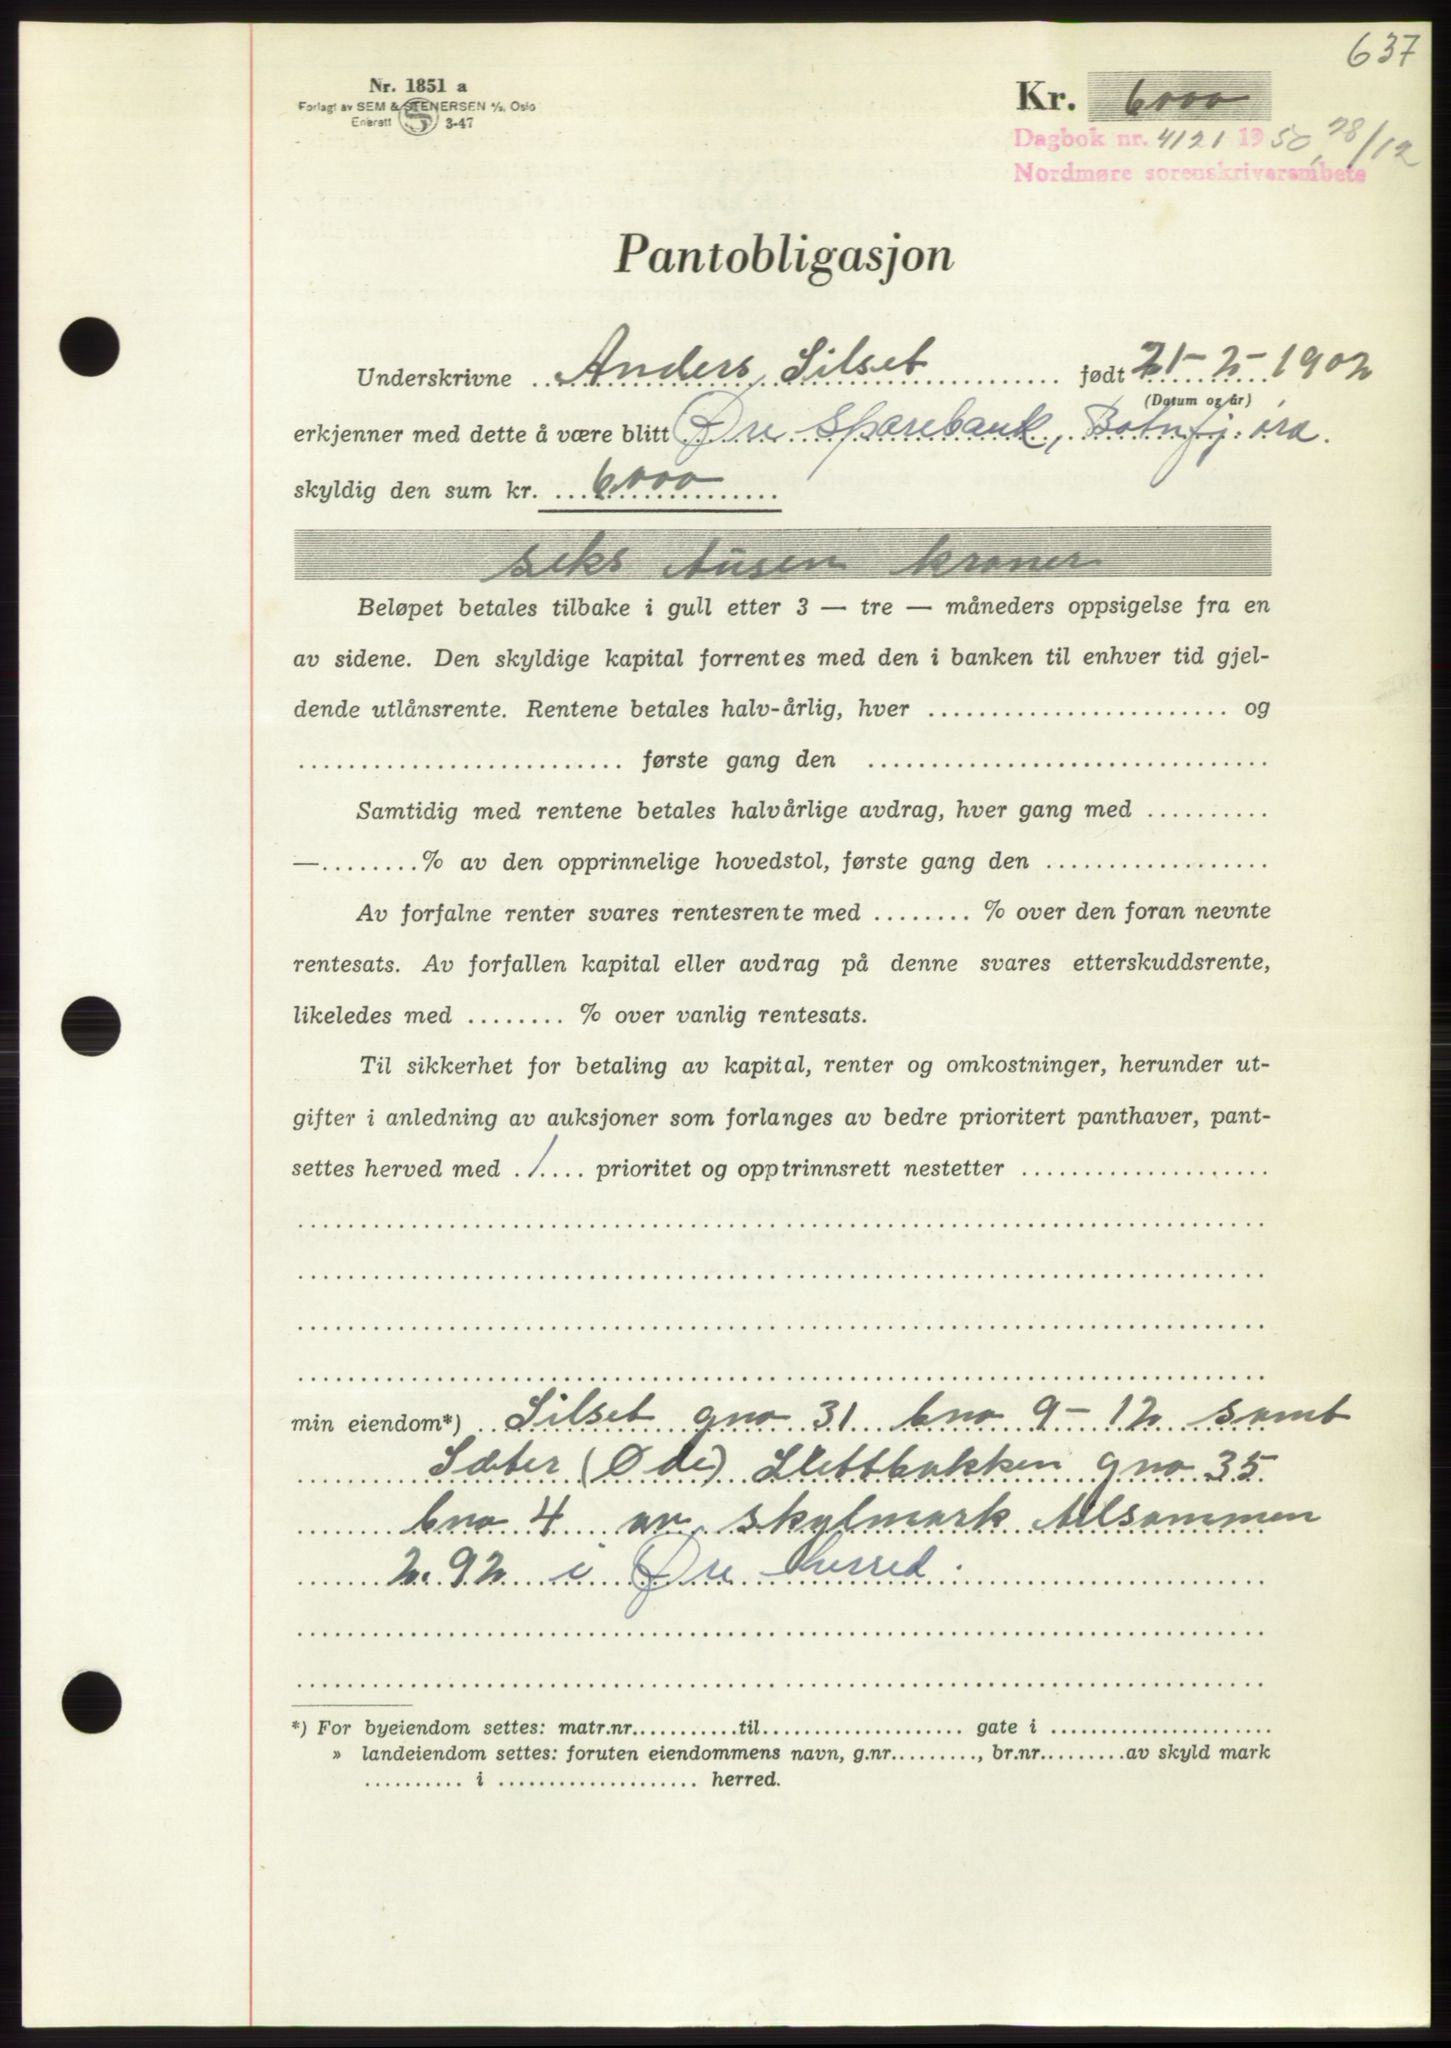 637
Nr. 1851 a
Forlagt av SEM & STENERSEN A/S, Oslo
Enerett S 3-47
Kr. 6000
Dagbok nr. 4121 1950, 28/12
Nordmøre sorenskriverembete
Pantobligasjon
Underskrivne Anders Silset født 21-2-1902
(Datum og år)
erkjenner med dette å være blitt Øre Sparebank, Botnfj.øra.
skyldig den sum kr. 6000
seks tusen kroner
Beløpet betales tilbake i gull etter 3 — tre — måneders oppsigelse fra en
av sidene. Den skyldige kapital forrentes med den i banken til enhver tid gjel-
dende utlånsrente. Rentene betales halv-årlig, hver ........................ og
.......................... første gang den ................................
Samtidig med rentene betales halvårlige avdrag, hver gang med ..........
—........% av den opprinnelige hovedstol, første gang den ..................
Av forfalne renter svares rentesrente med ........ % over den foran nevnte
rentesats. Av forfallen kapital eller avdrag på denne svares etterskuddsrente,
likeledes med ........ % over vanlig rentesats.
Til sikkerhet for betaling av kapital, renter og omkostninger, herunder ut-
gifter i anledning av auksjoner som forlanges av bedre prioritert panthaver, pant-
settes herved med . 1 .... prioritet og opptrinnsrett nestetter ....................
min eiendom*) Silset gno 31 bno 9-12 samt
Sæter (Øde) Slettbakken gno 35
bno 4 av skylmark tilsammen
2.92 i Øre herred.
*) For byeiendom settes: matr.nr...........til.................... gate i ......................
» landeiendom settes: foruten eiendommens navn, g.nr........., br.nr.........av skyld mark
.......... i .................... herred.